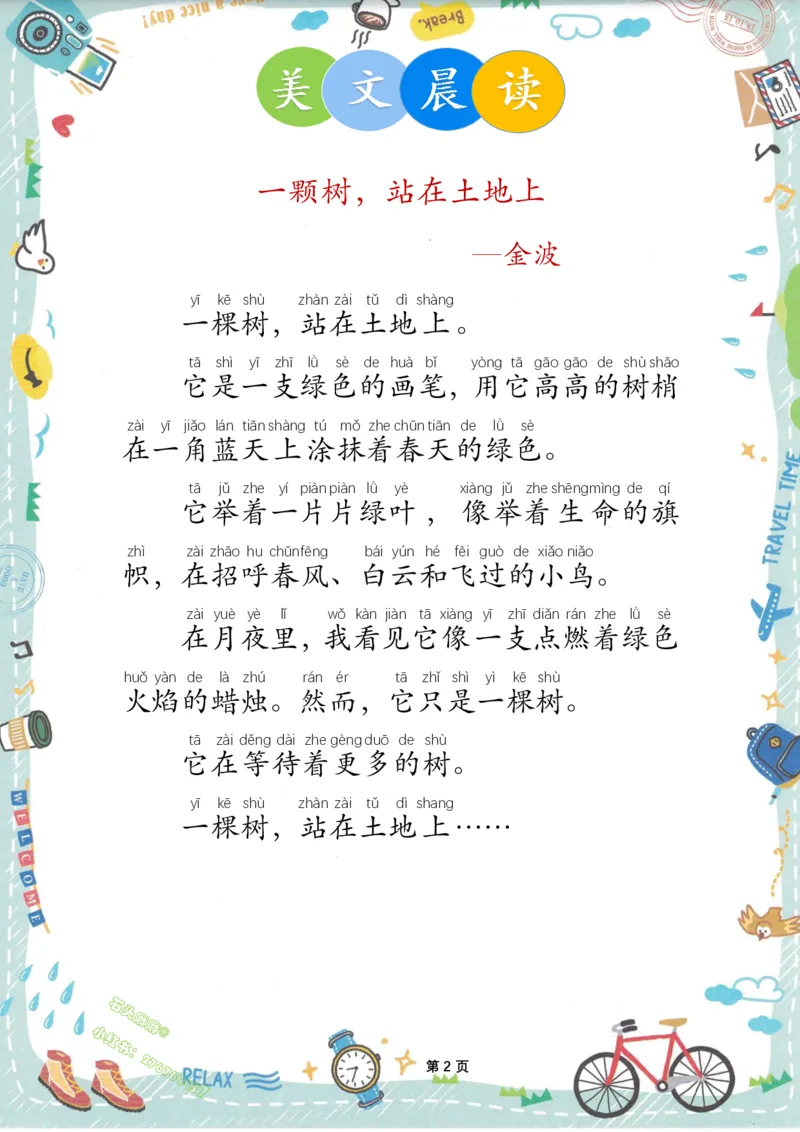 Have a nice day!
Break.
美文晨读
一颗树，站在土地上
—金波
yī kē shù zhàn zài tǔ dì shàng
一棵树，站在土地上。
tā shì yī zhī lǜ sè de huà bǐ yòng tā gāo gāo de shù shāo
它是一支绿色的画笔，用它高高的树梢
zài yī jiǎo lán tiān shàng tú mǒ zhe chūn tiān de lǜ sè
在一角蓝天上涂抹着春天的绿色。
tā jǔ zhe yí piàn piàn lǜ yè xiàng jǔ zhe shēng mìng de qí
它举着一片片绿叶，像举着生命的旗
zhì zài zhāo hu chūn fēng bái yún hé fēi guò de xiǎo niǎo
帜，在招呼春风、白云和飞过的小鸟。
zài yuè yè lǐ wǒ kàn jiàn tā xiàng yī zhī diǎn rán zhe lǜ sè
在月夜里，我看见它像一支点燃着绿色
huǒ yàn de là zhú rán ér tā zhǐ shì yì kē shù
火焰的蜡烛。然而，它只是一棵树。
tā zài děng dài zhe gèng duō de shù
它在等待着更多的树。
yī kē shù zhàn zài tǔ dì shang
一棵树，站在土地上……
TRAVEL TIME
WELCOME
小红书：
RELAX
第 2 页